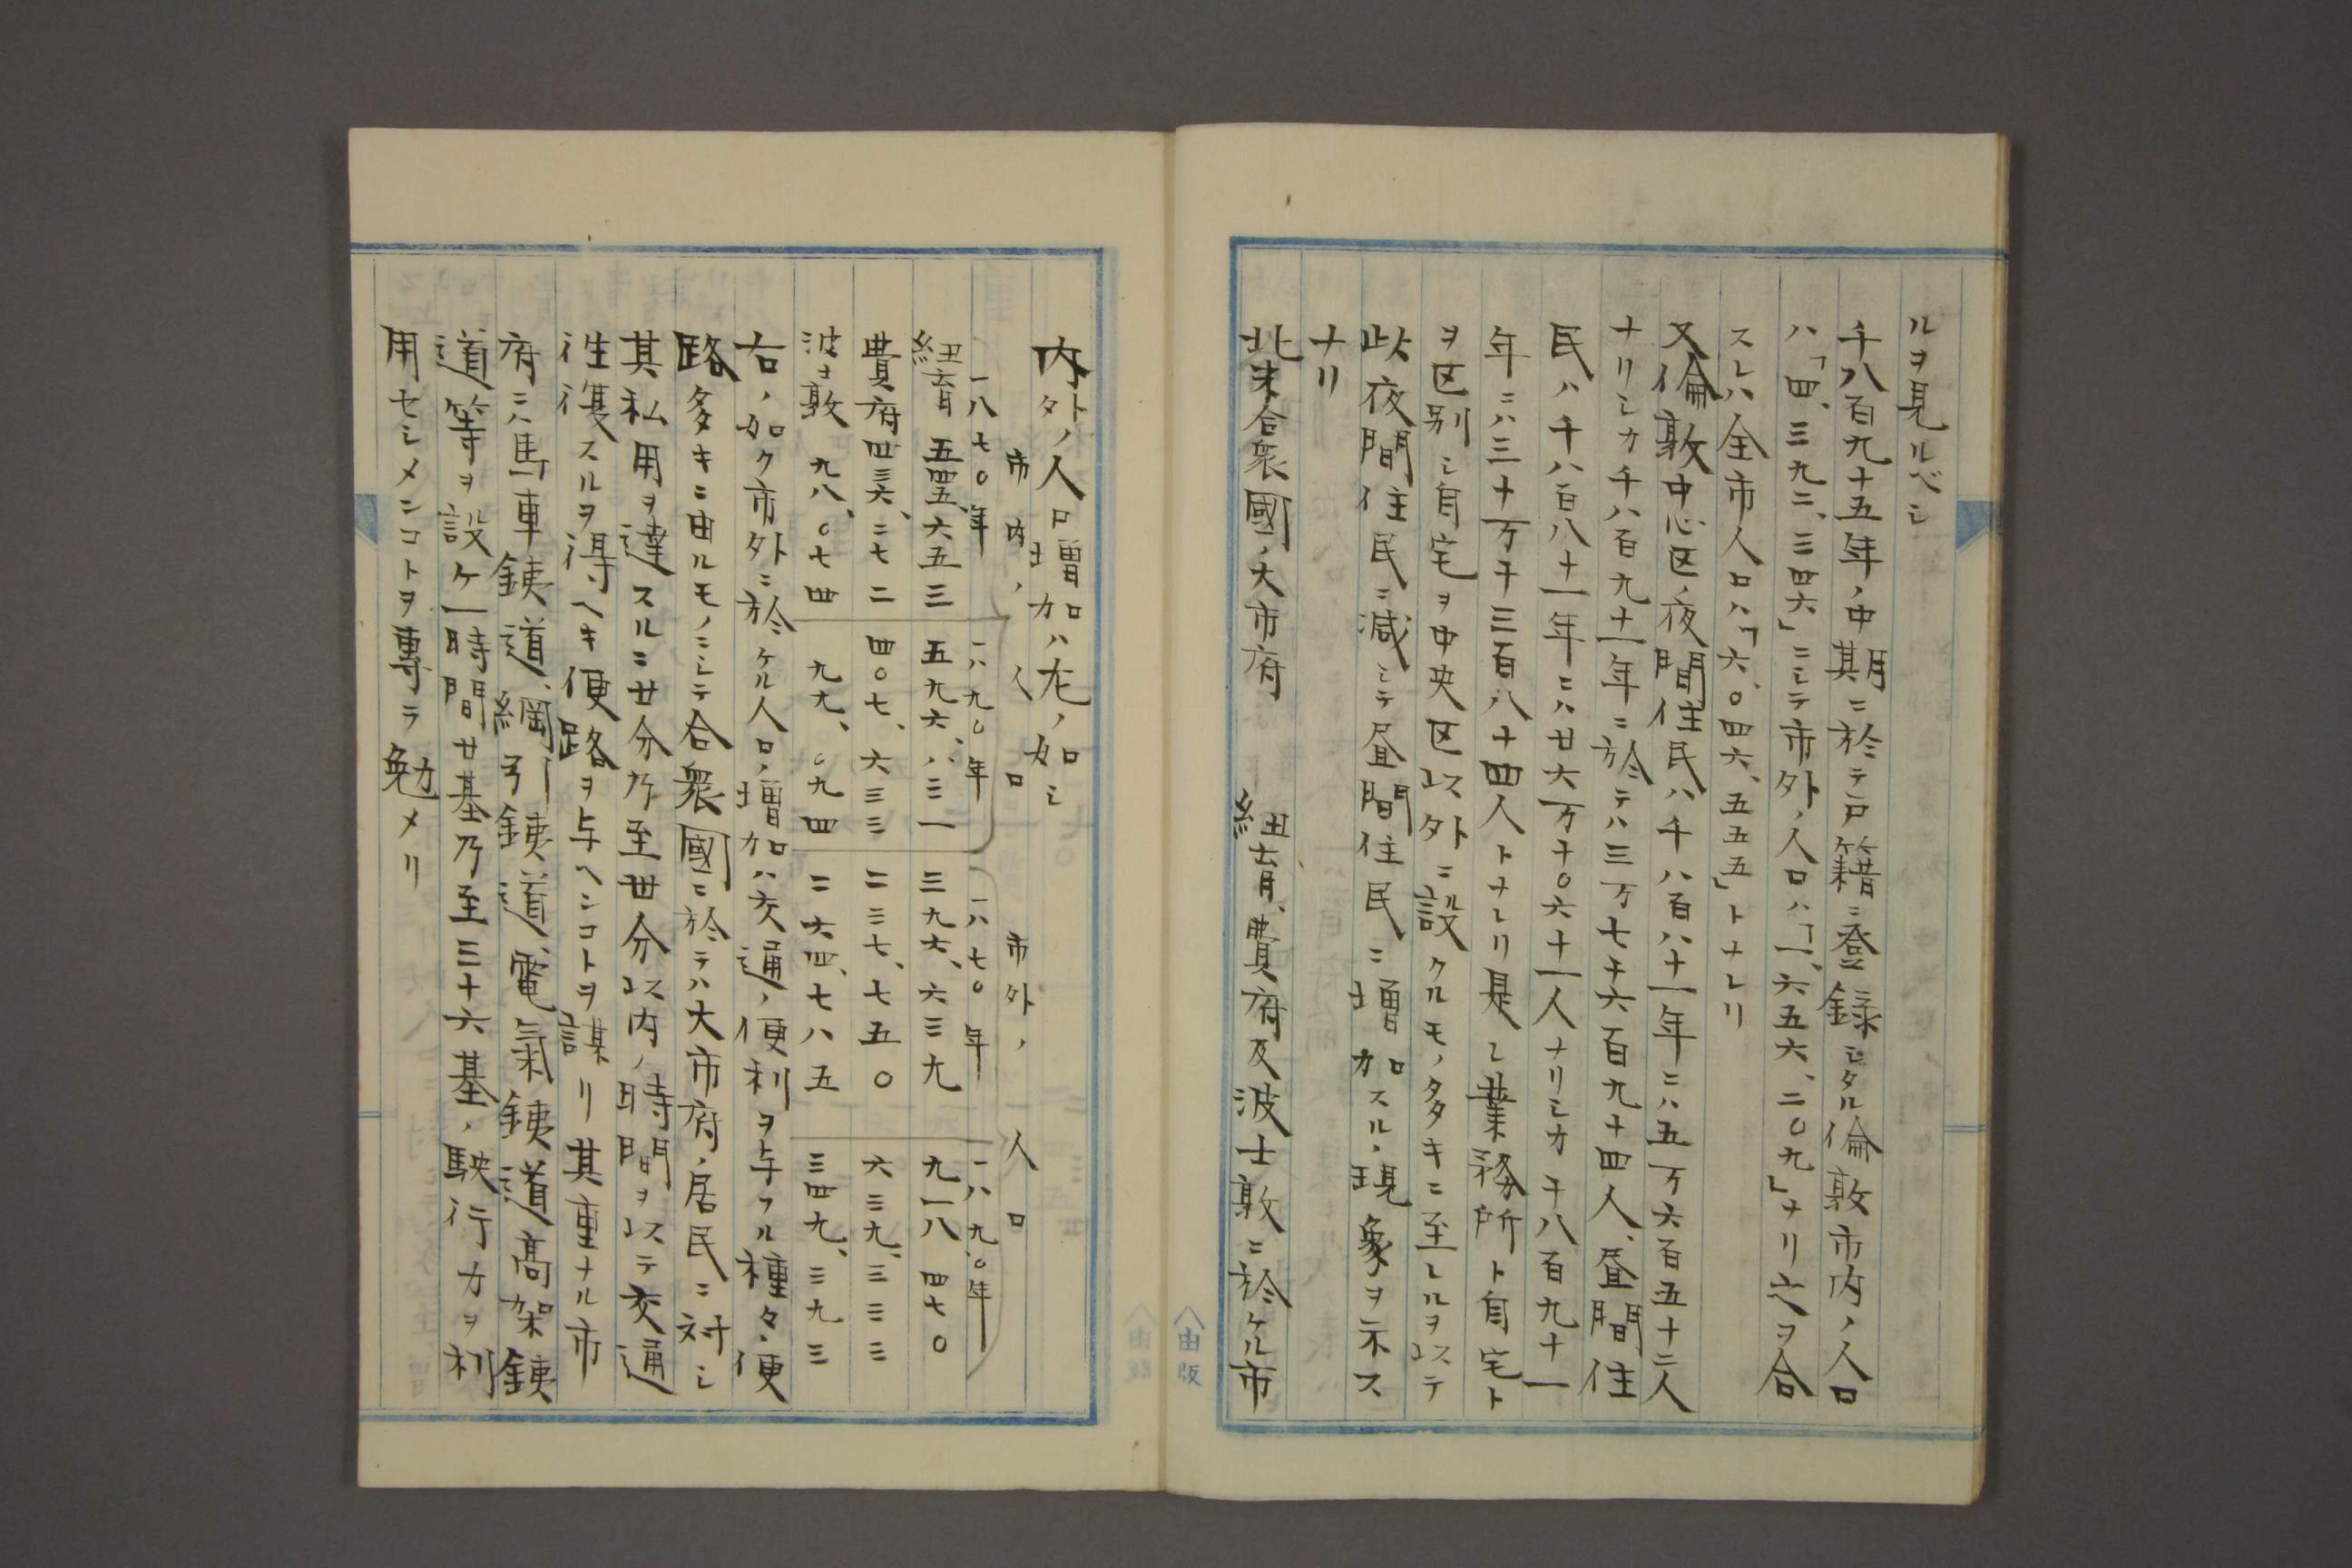 ルヲ見ルベシ
千八百九十五年ノ中期ニ於テ戸籍ニ登録シタル倫敦市内ノ人口
ハ「四、三九二、三四六」ニシテ市外ノ人口ハ「一、六五六、二〇九」ナリ之ヲ合
スレハ全市人口ハ「六、〇四六、五五五」トナレリ
又倫敦中心区ノ夜間住民ハ千八百八十一年ニハ五万六百五十二人
ナリシカ千八百九十一年ニ於テハ三万七千六百九十四人、昼間住
民ハ千八百八十一年ニハ廿六万千〇六十一人ナリシカ千八百九十一
年ニハ三十万千三百八十四人トナレリ是レ業務所ト自宅ト
ヲ区別シ自宅ヲ中央区以外ニ設クルモノ多キニ至レルヲ以テ
此夜間住民ニ減シテ昼間住民ニ増加スル、現象ヲ示ス
ナリ
北米合衆國ノ大市府 紐育、費府及波士敦ニ於ケル市
由版
内外ノ人口増加ハ左ノ如シ
市内ノ人口 市外ノ人口
一八七〇年 一八九〇年 一八七〇年 一八九〇年
紐育 五四五、六五三 五九六、八三一 三九六、六三九 九一八四七〇
費府 四三六、二七二 四〇七、六三三 二三七、七五〇 六三九、三三三
波士敦 九八、〇七四 九九、〇九四 二六四、七八五 三四九、三九三
右ノ如ク市外ニ於ケル人口ノ増加ハ交通ノ便利ヲ与フル種々ノ便
路多キニ由ルモノニシテ合衆國ニ於テハ大市府ノ居民ニ対シ
其私用ヲ達スルニ廿分乃至丗分以内ノ時間ヲ以テ交通
往復スルヲ得ヘキ便路ヲ与ヘンコトヲ謀リ其重ナル市
府ニハ馬車銕道、綱引銕道、電氣銕道高架銕
道等ヲ設ケ一時間廿基乃至三十六基ノ駛行力ヲ利
用セシメンコトヲ專ラ勉メリ